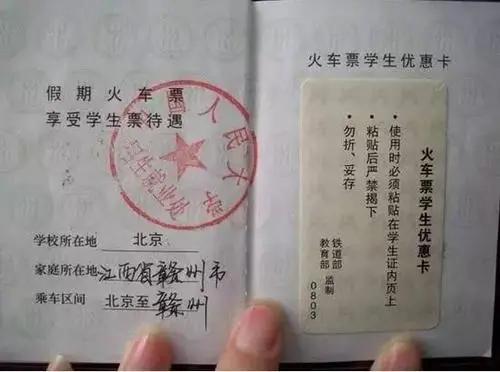 假期火车票
享受学生票待遇
人民大学
学校所在地 北京
家庭所在地 江西省赣州市
乘车区间 北京至赣州
火车票学生优惠卡
火车票学生优惠卡
• 使用时必须粘贴在学生证内页上
• 粘贴后严禁揭下
• 勿折、妥存
铁道部
教育部 监制
0803